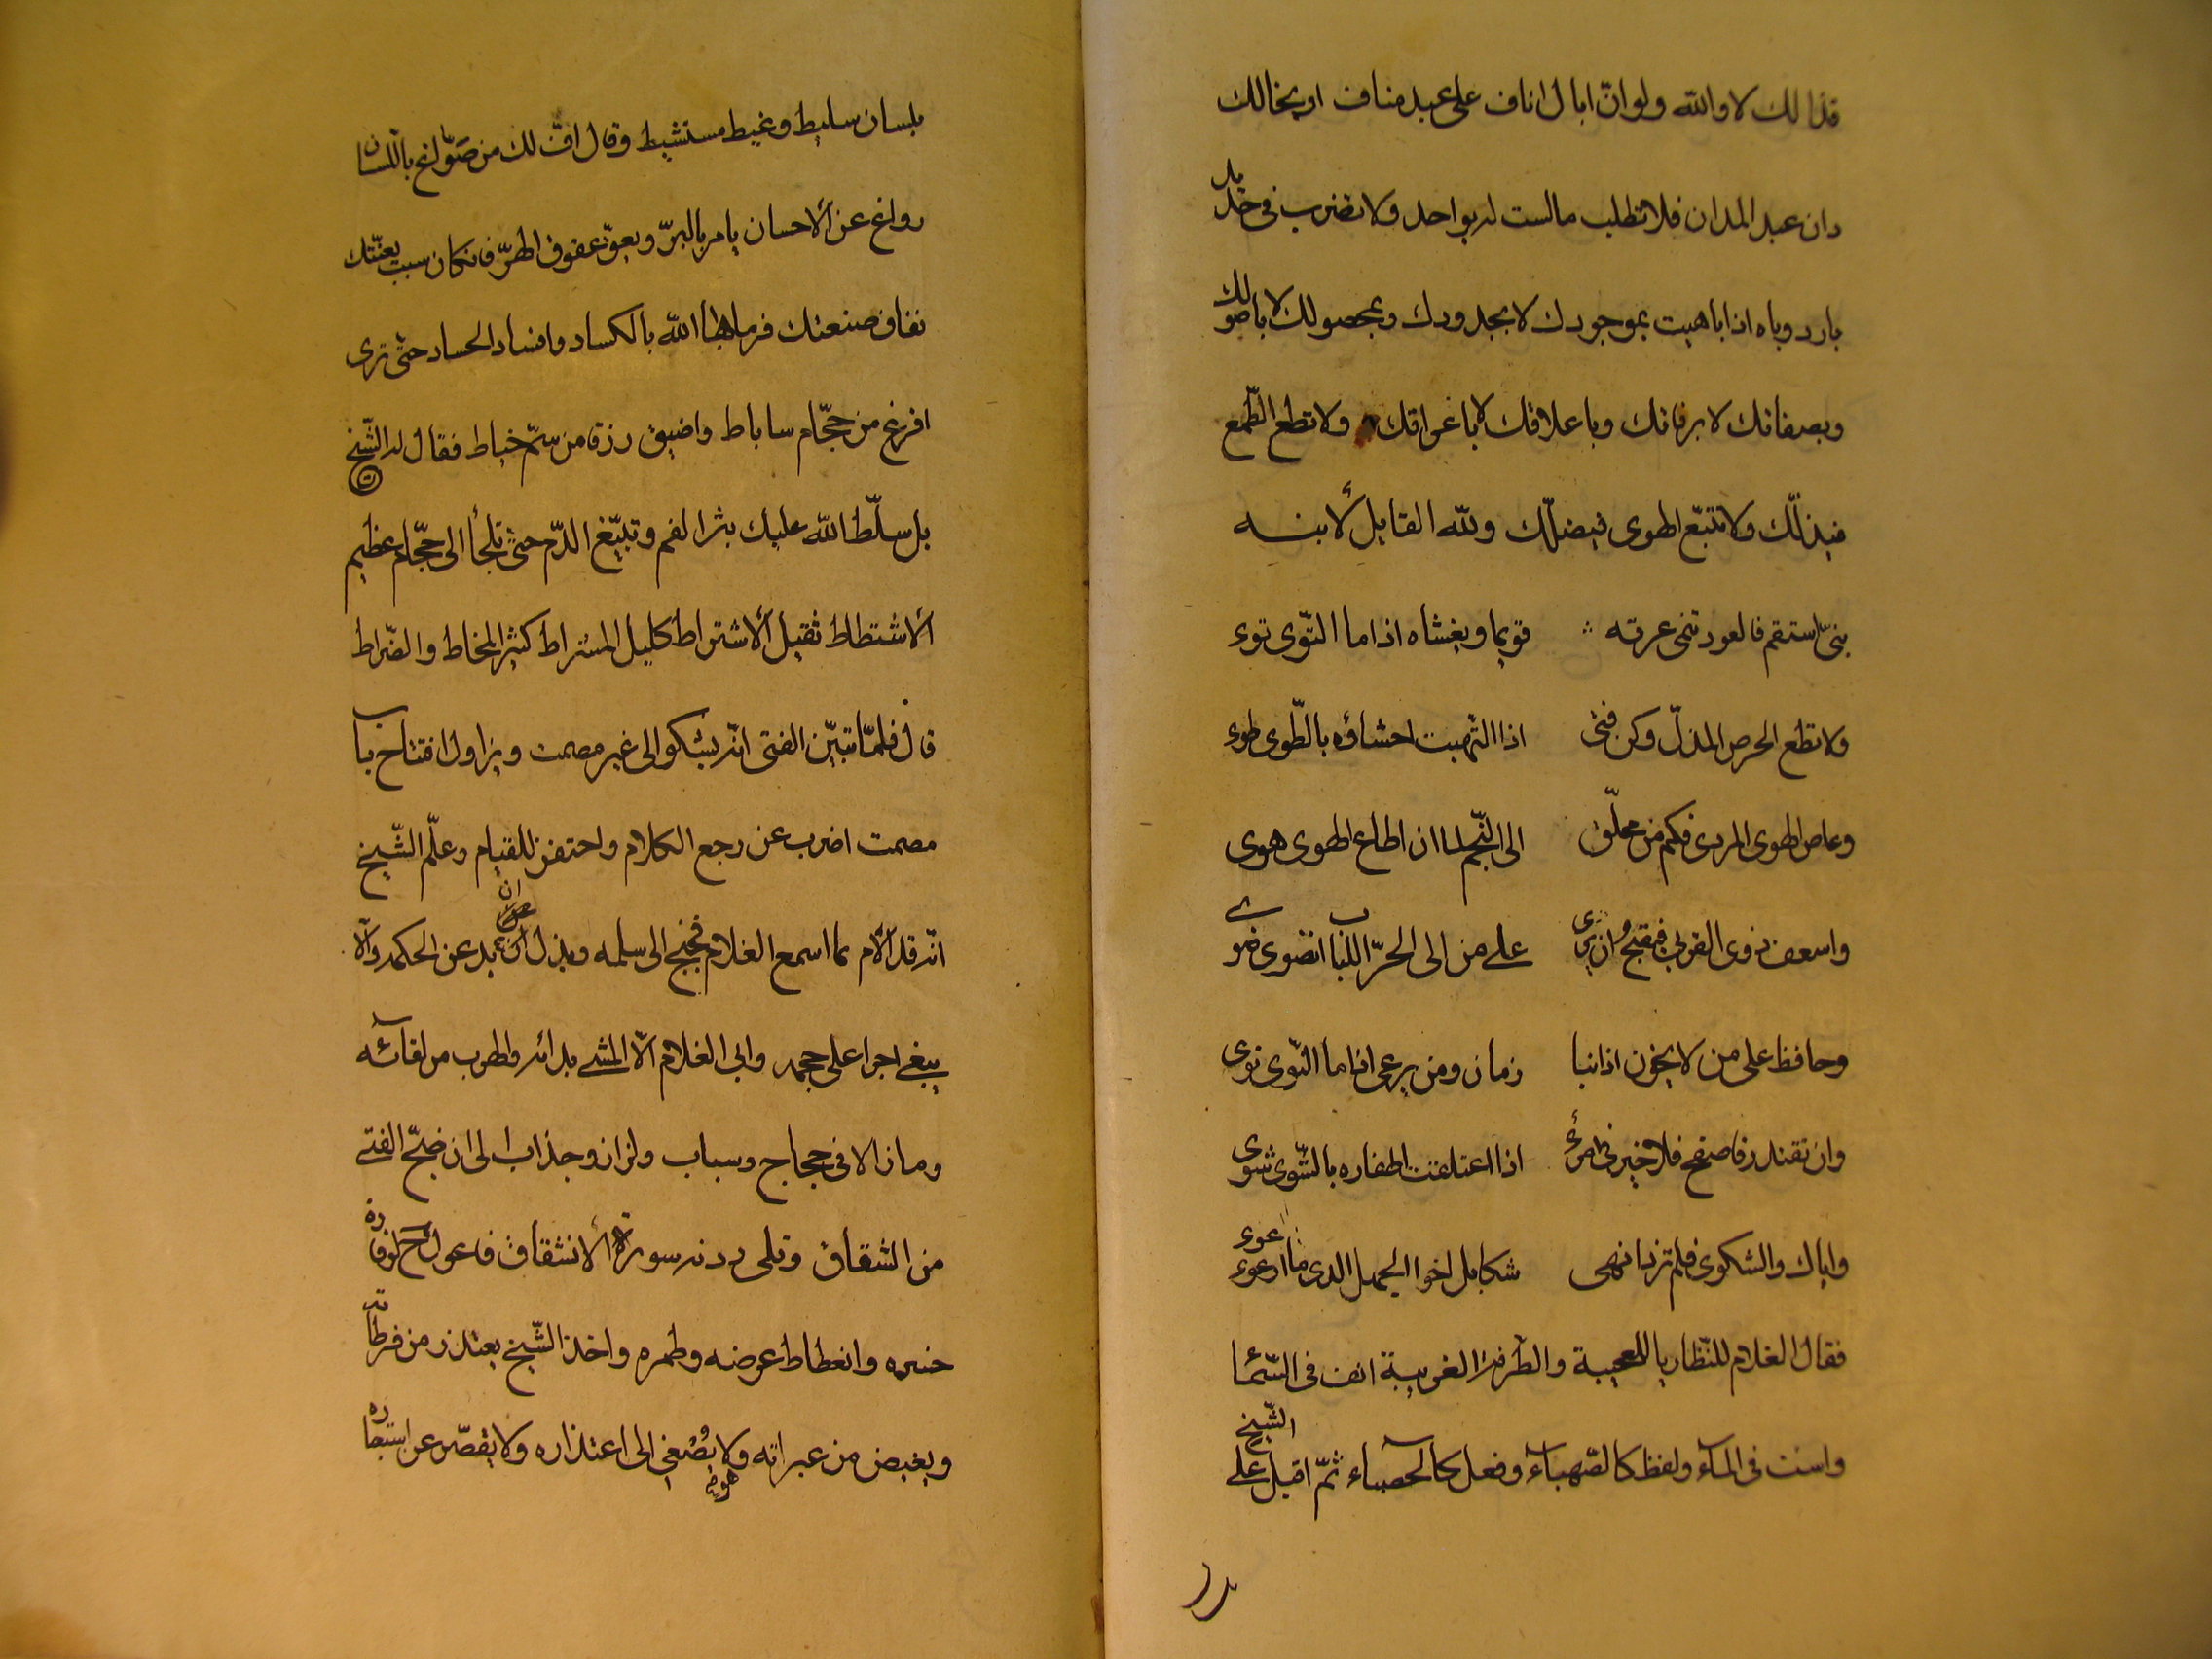 قذالك لا والله ولو انّ اباك اناف على عبد مناف او بخالك
دان عبد المدان فلا تطلب مالست له بواحد ولا تضرب فى حديد
بارد وباه اذا باهيت بموجودك لا بجدودك وبمحصولك لا باصولك
وبصفاتك لا برفاتك وباعلاقك لا باعراقك ولا تطع الطّمع
فيذلّك ولا تتبّع الهوى فيضلّك ولله القايل لأبنه
بنىّ استقم فالعود تنمى عروقه قويما ويغشاه اذا ما التّوى توى
ولا تطع الحرص المذلّ وكن فتى اذا التهبت احشاؤه بالطّوى طوى
وعاص الهوى المردى فكم من محلّق الى النّجم لما ان اطاع الهوى هوى
واسعف ذوى القربى فيقبح ان يرى على من الى الحرّ اللباب انضوى ضوى
وحافظ على من لا يخون اذا نبا زمان ومن يرعى اذا ما النّوى نوى
وان تقتدر فاصفح فلا خير فى امرئ اذا اعتلقت اظفاره بالشّوى شوى
واياك والشكوى فلم تر ذا نهى شكا بل اخوا الجهل الذى ما ارعوى عوى
فقال الغلام للنّظار يا للعجيبة والطّرفة الغريبة انف فى السّمآ
واست فى المآء ولفظ كالصّهبآء وفعل كالحصباء ثمّ اقبل على الشّيخ
بلسان سليط وغيط مستشيط وقال افّ لك من صوّاغ باللّسان
رواغ عن الاحسان يامر بالبرّ ويعقّ عقوق الهرّ فان كان سبب تعنّتك
نفاق صنعتك فرماها الله بالكساد وافساد الحساد حتّى ترى
افرغ من حجّام ساباط واضيق رزقا من سمّ خياط فقال له الشّيخ
بل سلّط الله عليك بثر الفم وتبيّغ الدّم حتّى تلجأ الى حجّام عظيم
الاشتطاط ثقيل الاشتراط كليل المشراط كثير المخاط والضّراط
قال فلمّا تبيّن الفتى انّه يشكو الى غير مصمت ويزاول افتتاح باب
مصمت اضرب عن رجع الكلام واحتفز للقيام وعلّم الشّيخ
انّه قد الأم بما اسمع الغلام فجنح الى سلمه وبذل ان يذعن لحكمه والا
يبغى اجرا على حجمه وابى الغلام الّا المشى بدائه والهرب من لقآئه
وما زالا فى حجاج وسباب ولزاز وجذاب الى ان ضجّ الفتى
من الشقاق وتلى ردنه سورة الانشقاق فاعول ح لوفارة
خسره وانعطاط عرضه وطمره واخذ الشّيخ يعتذر من فرطاته
ويغيض من عبراته وهو لا يصغى الى اعتذاره ولا يقصّر عن استعباره